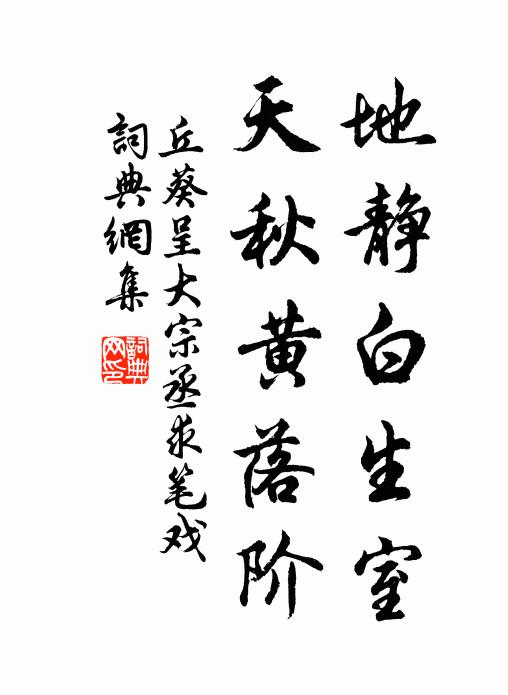 地静白生室
天秋黄落阶
丘葵呈大宗丞求笔戏
詞典網集
詞典网印